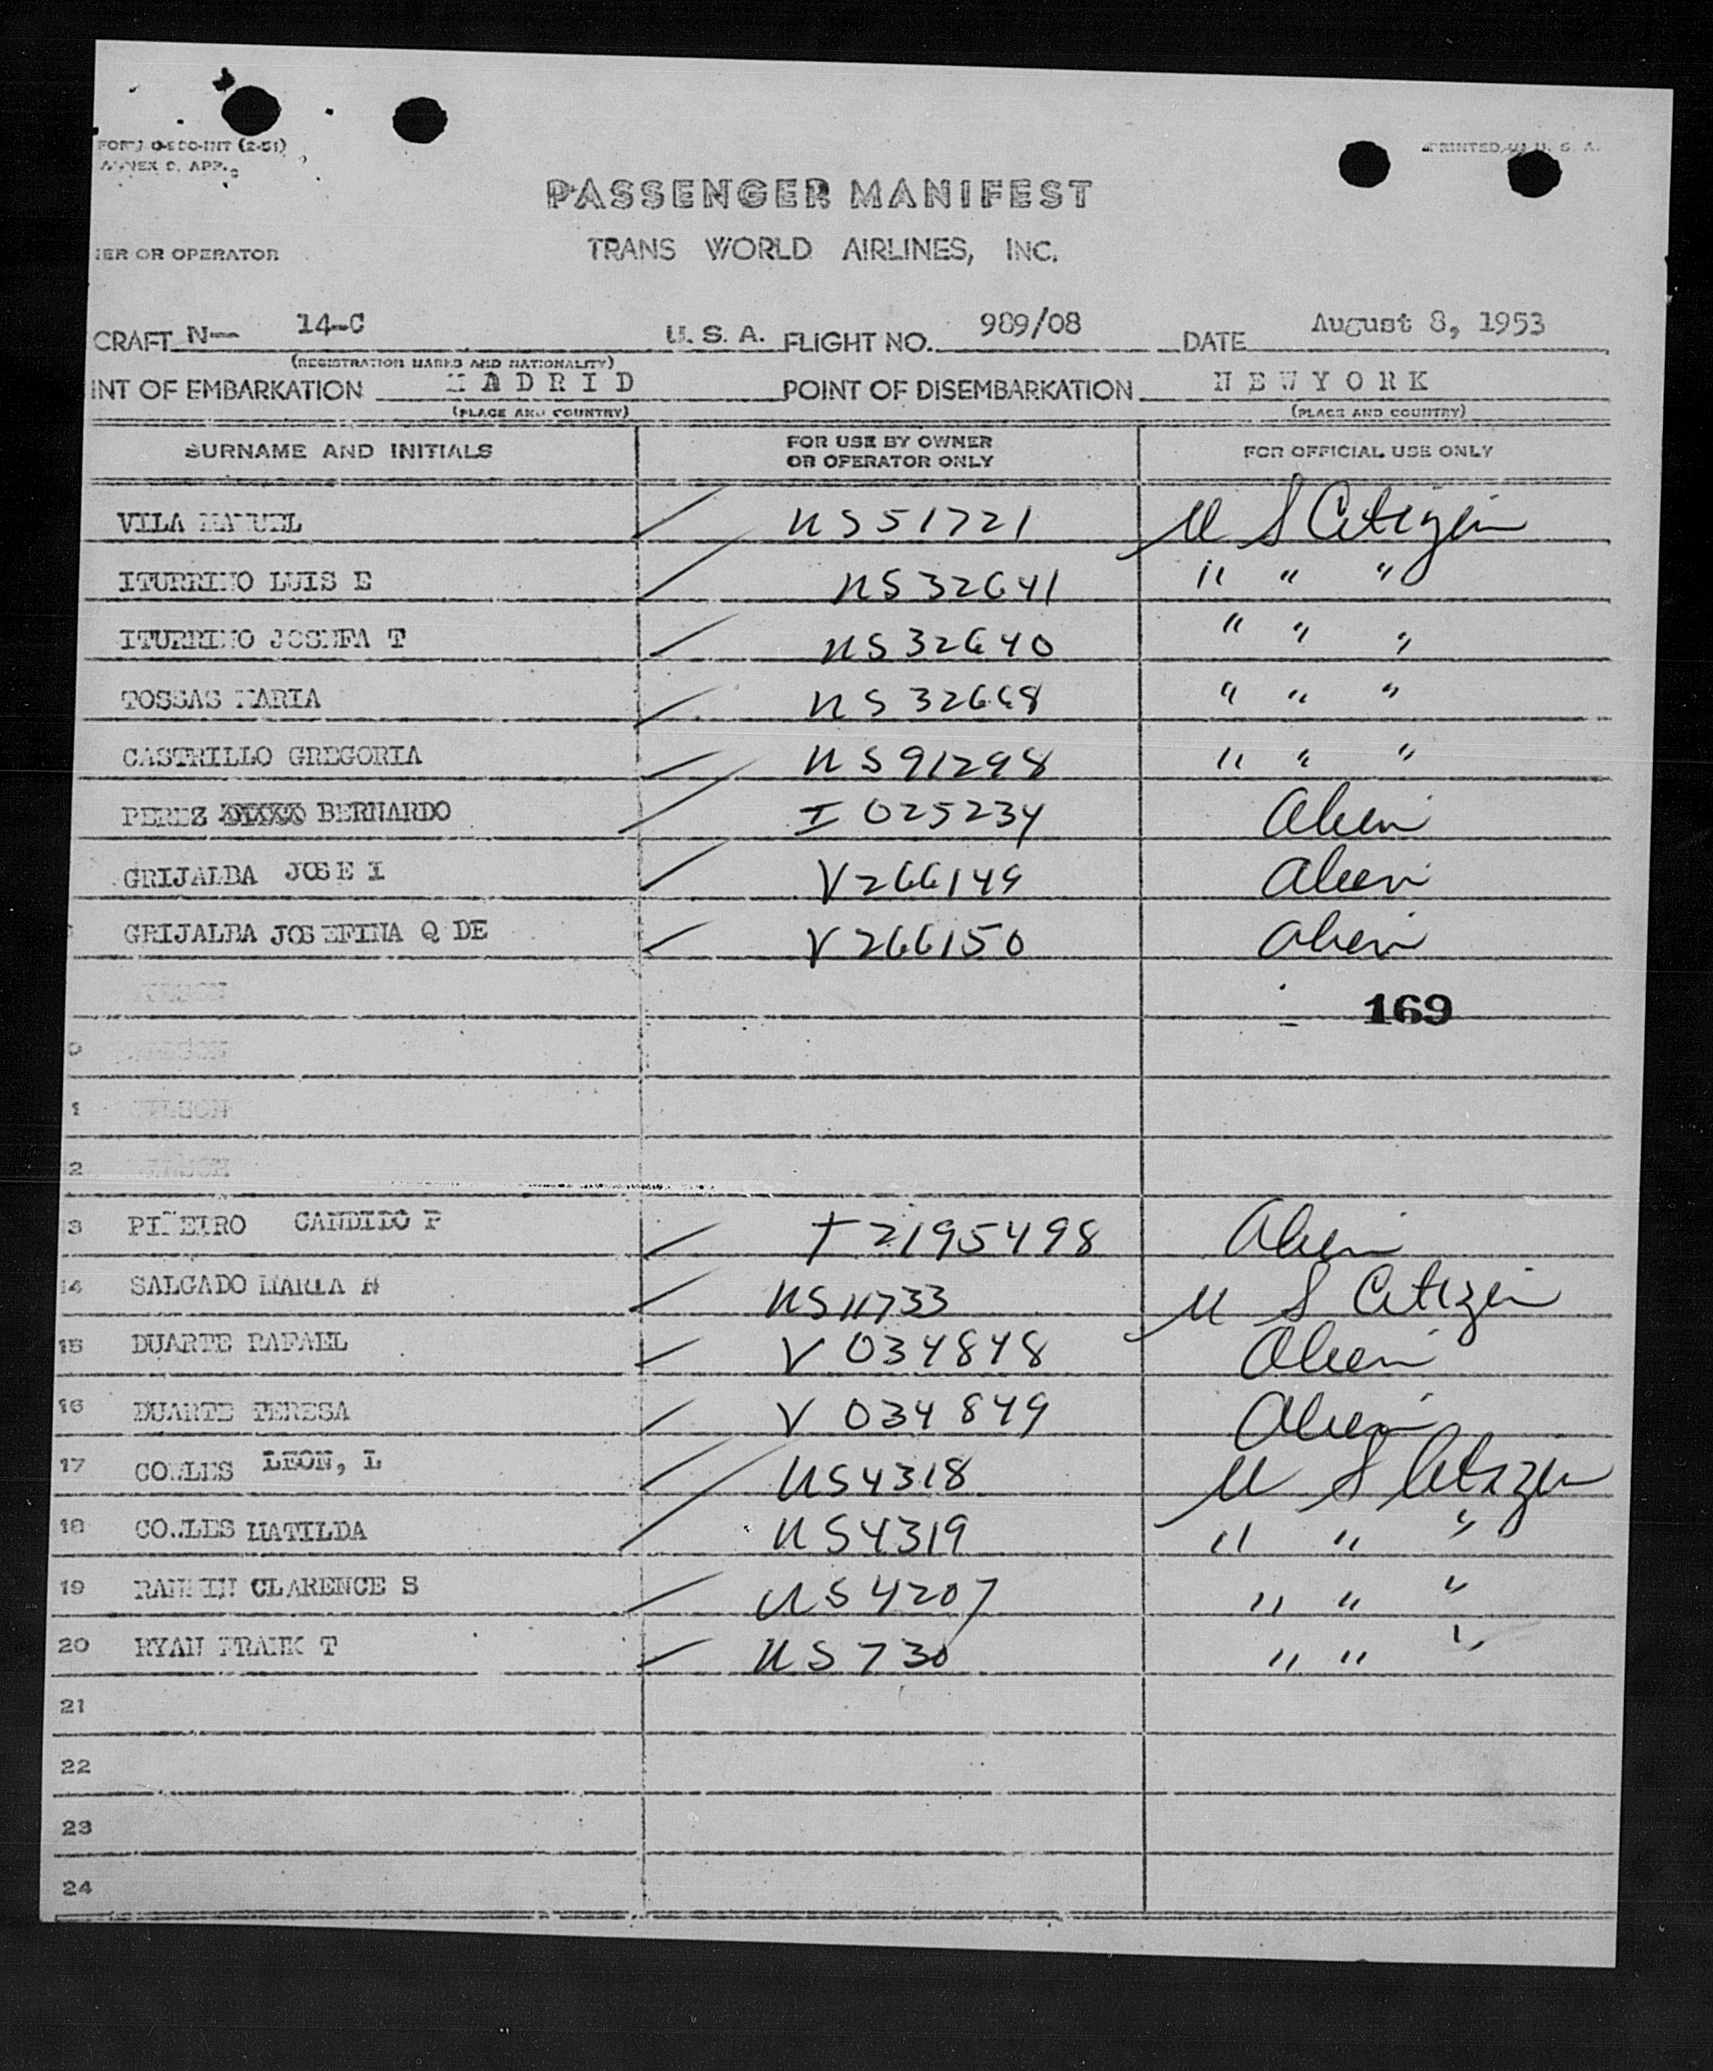 FORM O-500-INT (2-51)
ANNEX 9, APP.
PRINTED IN U. S. A.
PASSENGER MANIFEST
IER OR OPERATOR
TRANS WORLD AIRLINES, INC.
CRAFT N— 14-C U. S. A. FLIGHT NO. 989/08 DATE August 8, 1953
(REGISTRATION MARKS AND NATIONALITY)
INT OF EMBARKATION M A D R I D POINT OF DISEMBARKATION N E W Y O R K
(PLACE AND COUNTRY) (PLACE AND COUNTRY)
SURNAME AND INITIALS FOR USE BY OWNER OR OPERATOR ONLY FOR OFFICIAL USE ONLY
VILA MANUEL US 51721 U S Citizen
ITURRINO LUIS E US 32641 " " "
ITURRINO JOSEFA T US 32640 " " "
TOSSAS MARIA US 32668 " " "
CASTRILLO GREGORIA US 91298 " " "
PEREZ BERNARDO I 025234 Alien
GRIJALBA JOSE I V 266149 Alien
GRIJALBA JOSEFINA Q DE V 266150 Alien
169
0
1
2
13 PIÑEIRO CANDIDO P I 2195498 Alien
14 SALGADO MARIA US 11733 U S Citizen
15 DUARTE RAFAEL V 034848 Alien
16 DUARTE TERESA V 034849 Alien
17 COWLES LEON, L US 4318 U S Citizen
18 COWLES MATILDA US 4319 " " "
19 RANKIN CLARENCE S US 4207 " " "
20 RYAN FRANK T US 730 " " "
21
22
23
24